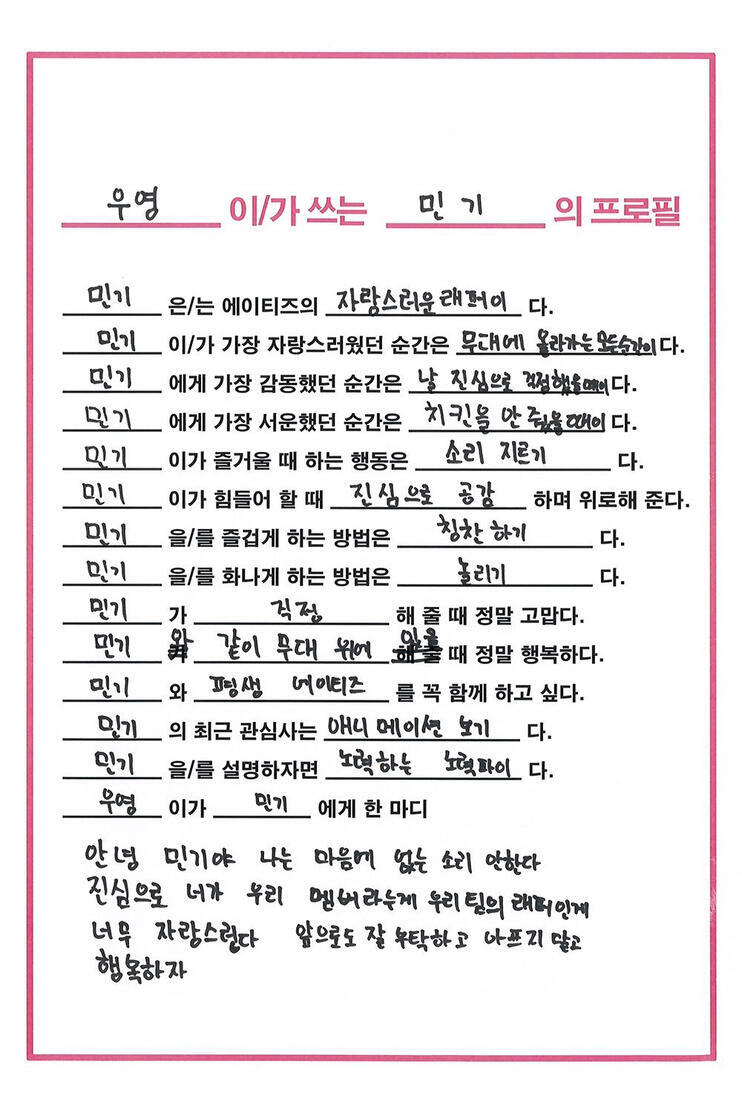 우영 이/가 쓰는 민기 의 프로필
민기 은/는 에이티즈의 자랑스러운 래퍼이 다.
민기 이/가 가장 자랑스러웠던 순간은 무대에 올라가는 모든 순간이 다.
민기 에게 가장 감동했던 순간은 날 진심으로 걱정했을때이 다.
민기 에게 가장 서운했던 순간은 치킨을 안 줬을때이 다.
민기 이가 즐거울 때 하는 행동은 소리 지르기 다.
민기 이가 힘들어 할 때 진심으로 공감 하며 위로해 준다.
민기 을/를 즐겁게 하는 방법은 칭찬하기 다.
민기 을/를 화나게 하는 방법은 놀리기 다.
민기 가 걱정 해 줄 때 정말 고맙다.
민기 와 같이 무대 위에 있을 때 정말 행복하다.
민기 와 평생 에이티즈 를 꼭 함께 하고 싶다.
민기 의 최근 관심사는 애니메이션 보기 다.
민기 을/를 설명하자면 노력하는 노력파이 다.
우영 이가 민기 에게 한 마디
안녕 민기야 나는 마음에 없는 소리 안한다
진심으로 너가 우리 멤버라는게 우리팀의 래퍼인게
너무 자랑스럽다 앞으로도 잘 부탁하고 아프지 말고
행복하자